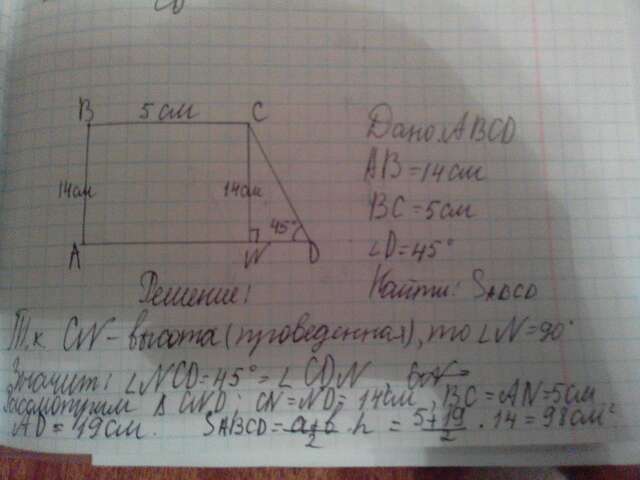 B 5 см C
14см 14см
45°
A N D
Дано: ABCD
AB = 14 см
BC = 5 см
∠D = 45°
Найти: SABCD
Решение:
Т.к. CN - высота (проведенная), то ∠N = 90°
Значит: ∠NCD = 45° = ∠CDN,
Рассмотрим Δ CND; CN = ND = 14 см, BC = AN = 5 см
AD = 19 см. SABCD = a+b/2 · h = 5+19/2 · 14 = 98 см²